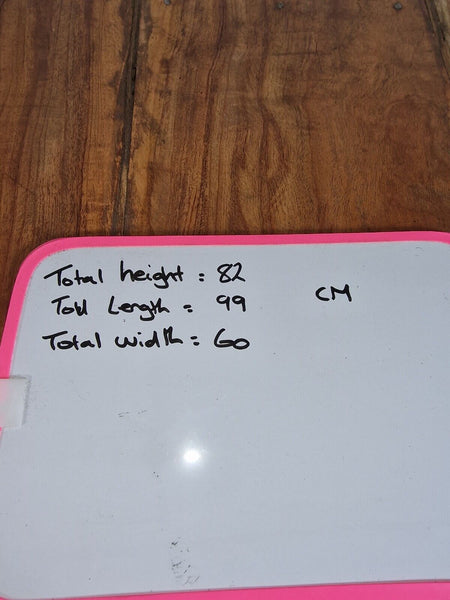 Total height : 82
Total Length = 99
CM
Total width = 60